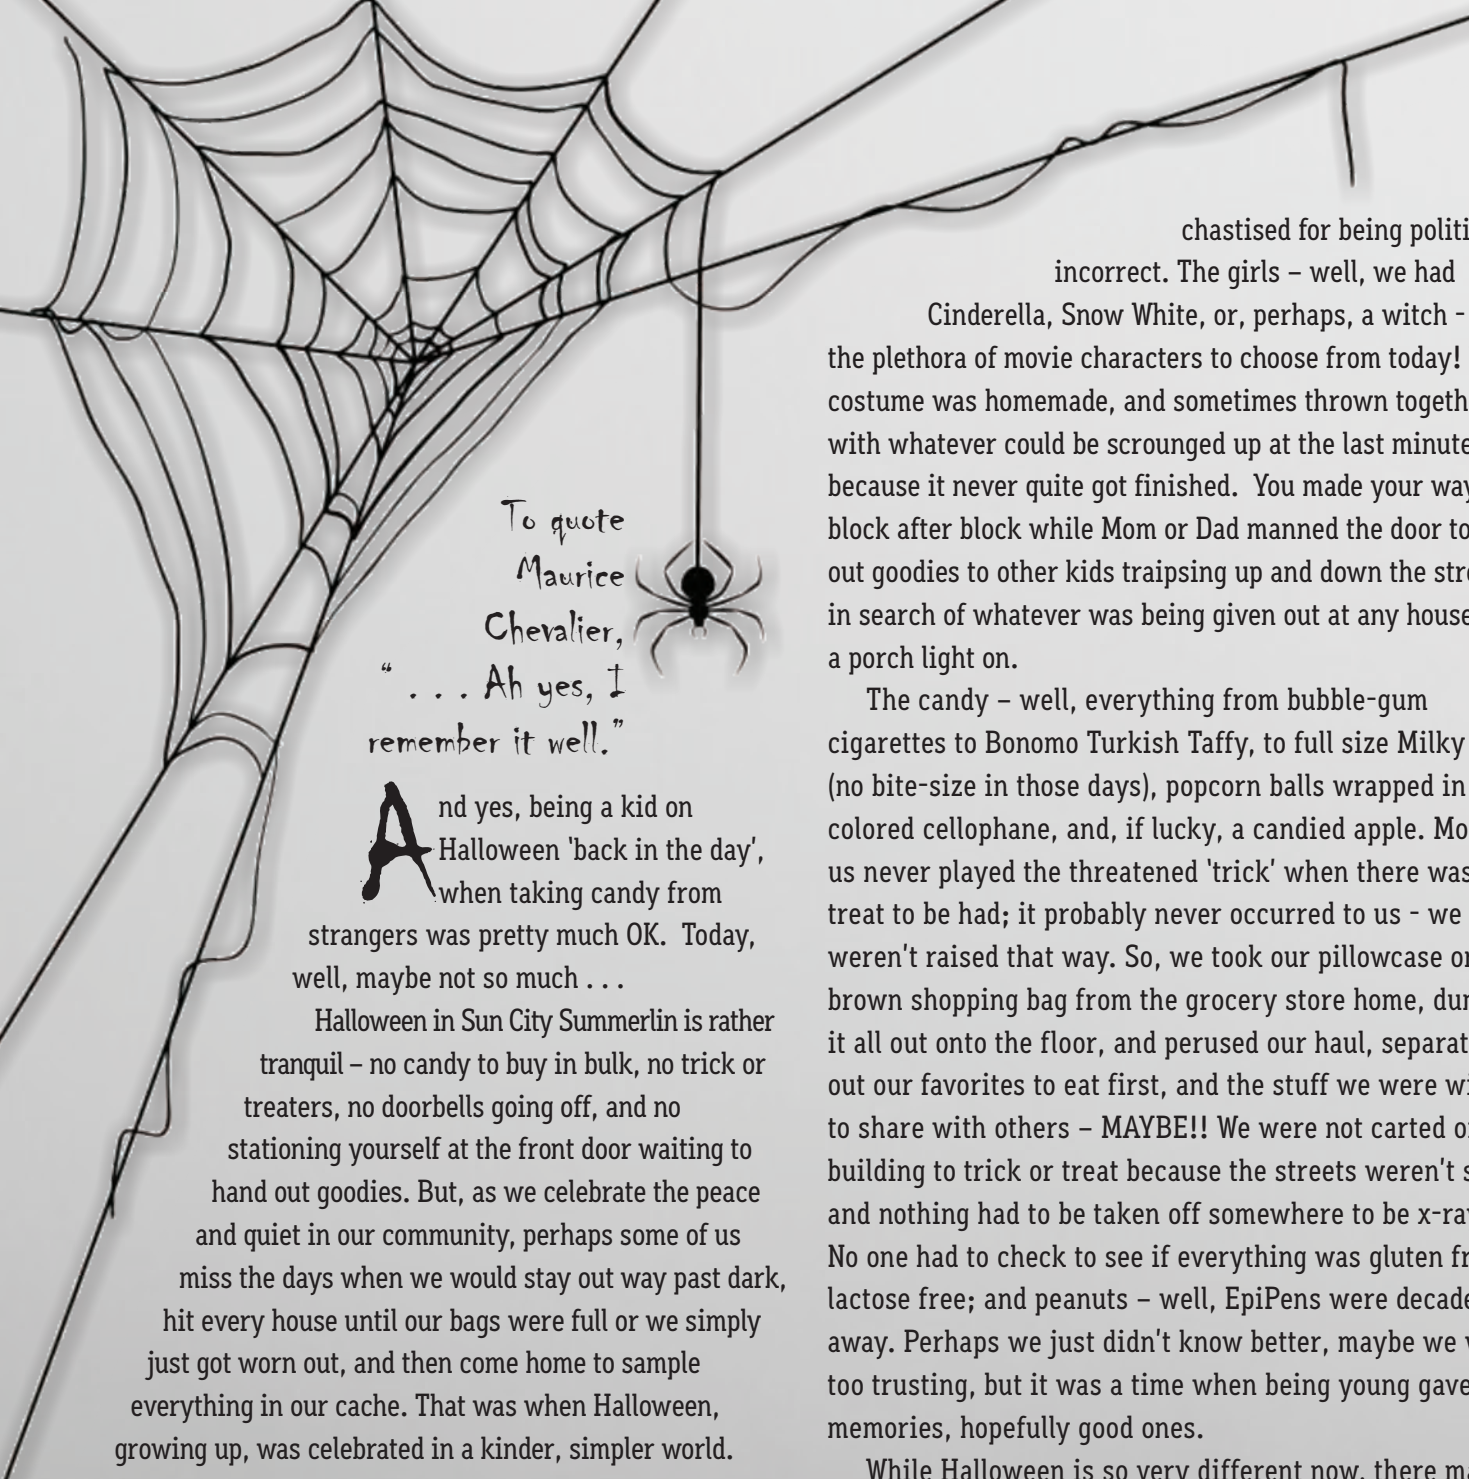 To quote
Maurice
Chevalier,
“ . . . Ah yes, I
remember it well.”
And yes, being a kid on
Halloween ‘back in the day’,
when taking candy from
strangers was pretty much OK.  Today,
well, maybe not so much . . .
Halloween in Sun City Summerlin is rather
tranquil – no candy to buy in bulk, no trick or
treaters, no doorbells going off, and no
stationing yourself at the front door waiting to
hand out goodies. But, as we celebrate the peace
and quiet in our community, perhaps some of us
miss the days when we would stay out way past dark,
hit every house until our bags were full or we simply
just got worn out, and then come home to sample
everything in our cache. That was when Halloween,
growing up, was celebrated in a kinder, simpler world.
chastised for being politi
incorrect. The girls – well, we had
Cinderella, Snow White, or, perhaps, a witch -
the plethora of movie characters to choose from today!
costume was homemade, and sometimes thrown togeth
with whatever could be scrounged up at the last minute
because it never quite got finished.  You made your way
block after block while Mom or Dad manned the door to
out goodies to other kids traipsing up and down the stre
in search of whatever was being given out at any house
a porch light on.
The candy – well, everything from bubble-gum
cigarettes to Bonomo Turkish Taffy, to full size Milky
(no bite-size in those days), popcorn balls wrapped in
colored cellophane, and, if lucky, a candied apple. Mo
us never played the threatened ‘trick’ when there was
treat to be had; it probably never occurred to us - we
weren’t raised that way. So, we took our pillowcase or
brown shopping bag from the grocery store home, dum
it all out onto the floor, and perused our haul, separat
out our favorites to eat first, and the stuff we were wi
to share with others – MAYBE!! We were not carted o
building to trick or treat because the streets weren’t s
and nothing had to be taken off somewhere to be x-ra
No one had to check to see if everything was gluten fr
lactose free; and peanuts – well, EpiPens were decade
away. Perhaps we just didn’t know better, maybe we w
too trusting, but it was a time when being young gave
memories, hopefully good ones.
While Halloween is so very different now, there m